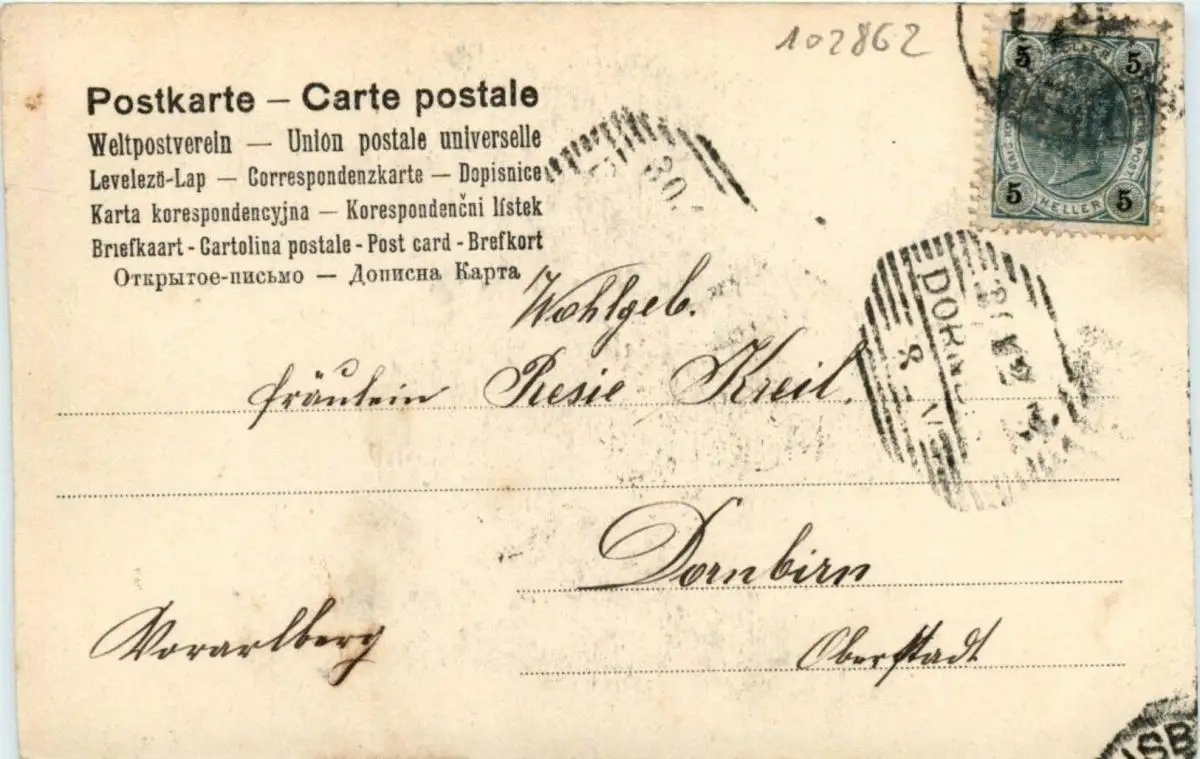 102862
Postkarte – Carte postale
Weltpostverein — Union postale universelle
Levelezö-Lap — Correspondenzkarte — Dopisnice
Karta korespondencyjna — Korespondenčni lístek
Briefkaart - Cartolina postale - Post card - Brefkort
Открытое-письмо — Дописна Карта
5 5
5 HELLER 5
30.
DORN
8
Wohlgeb.
fräulein Resie Kreil.
Dornbirn
Vorarlberg Oberstadt